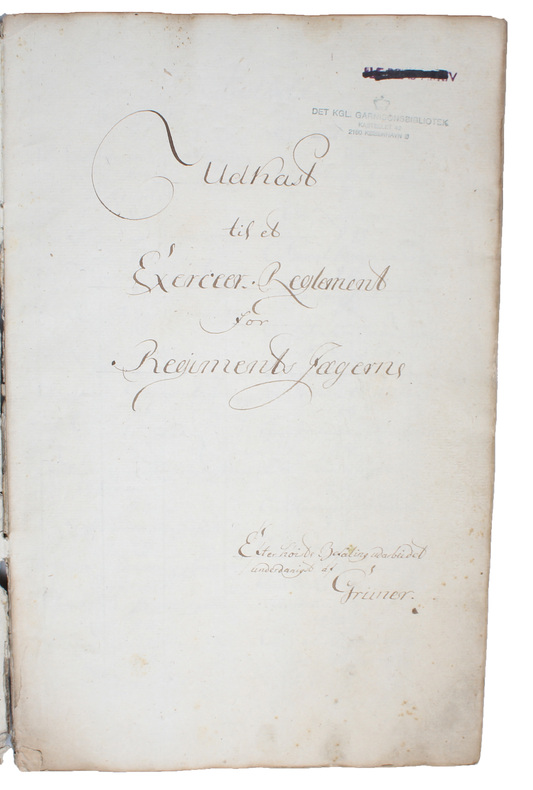 DET KGL. GARNISONSBIBLIOTEK
2100 KØBENHAVN Ø
Udkast
til et
Exerceer-Reglement
for
Regiments Jægerne
Efter høieste Befaling udarbeidet
underdanigst af
Grüner.